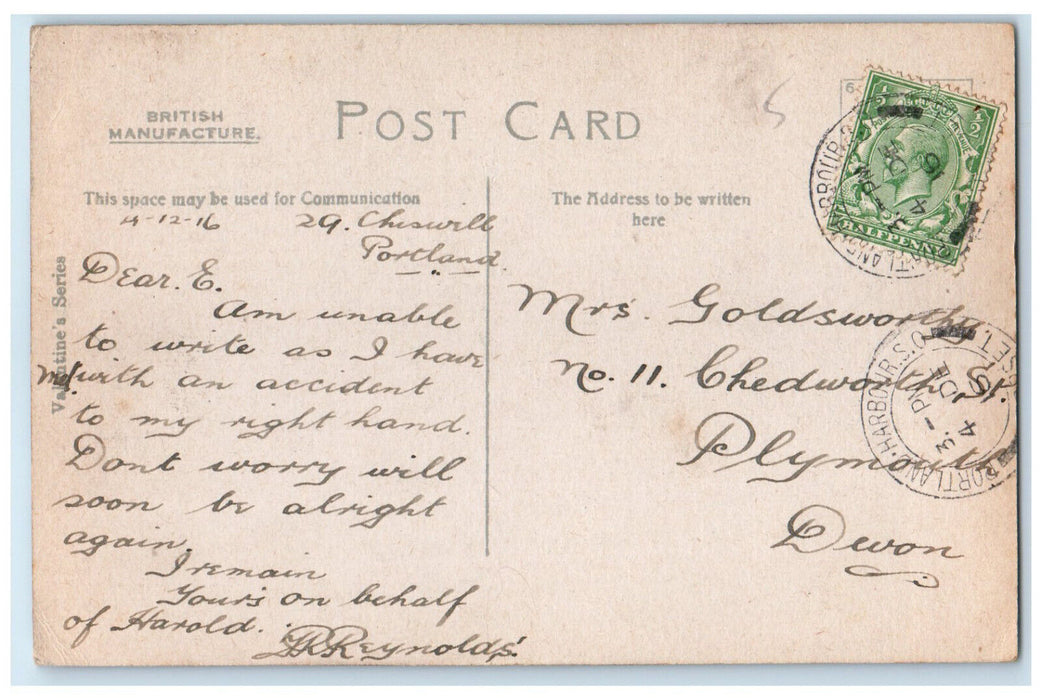 BRITISH
MANUFACTURE.
POST CARD
This space may be used for Communication
The Address to be written
here
Valentine's Series
4-12-16 29. Cheswill
Portland.
Dear. E.
Am unable
to write as I have
met with an accident
to my right hand.
Dont worry will
soon be alright
again.
I remain
Yours on behalf
of Harold.
Reynolds.
Mrs. Goldsworthy
No. 11. Chedworth St.
Plymouth
Devon
½ ½
HALFPENNY
PORTLAND HARBOUR S.O.
3 - PM
4 DE
16
PORTLAND HARBOUR S.O.
3 - PM
4 DE
16